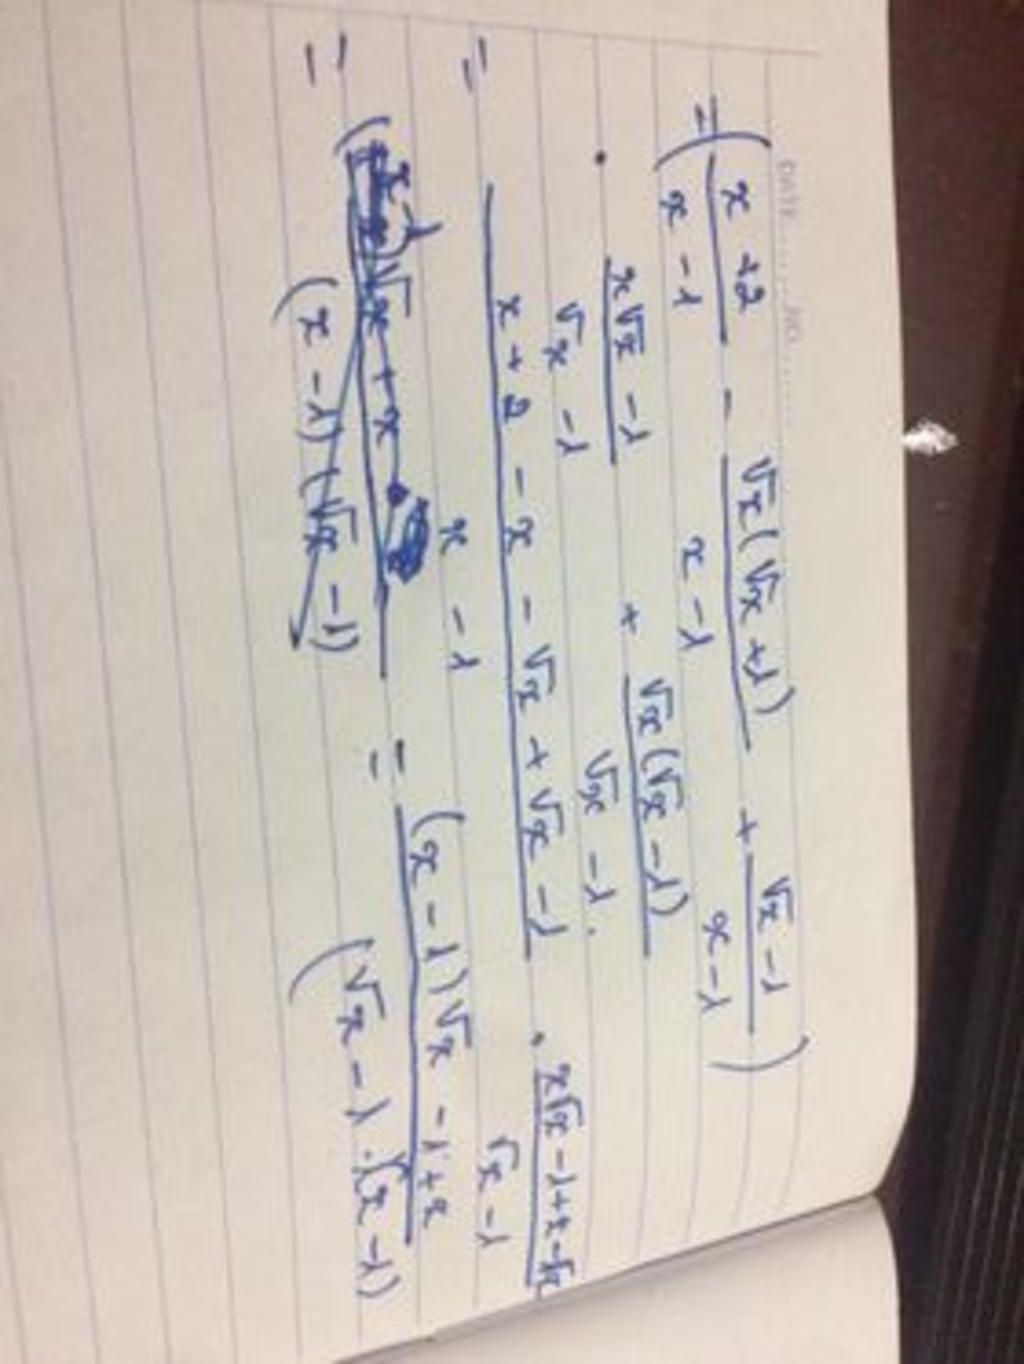 DATE ........ NO ........
= ( (x + 2)/(x - 1) - √x(√x + 1)/(x - 1) + (√x - 1)/(x - 1) )
. (x√x - 1)/(√x - 1) + √x(√x - 1)/(√x - 1).
= (x + 2 - x - √x + √x - 1)/(x - 1) . (x√x - 1 + x - √x)/(√x - 1)
= = (x - 1)√x - 1 + x / (√x - 1 . (x - 1)
(x - 1)(√x - 1)